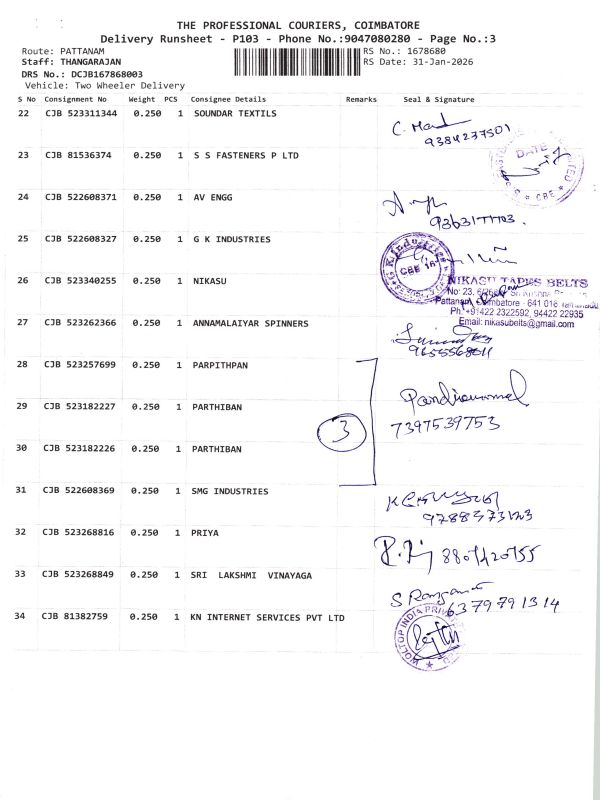 THE PROFESSIONAL COURIERS, COIMBATORE
Delivery Runsheet - P103 - Phone No.:9047080280 - Page No.:3
Route: PATTANAM RS No.: 1678680
Staff: THANGARAJAN RS Date: 31-Jan-2026
DRS No.: DCJB167868003
Vehicle: Two Wheeler Delivery
S No Consignment No Weight PCS Consignee Details Remarks Seal & Signature
22 CJB 523311344 0.250 1 SOUNDAR TEXTILS
9384237501
DATE
CBE
23 CJB 81536374 0.250 1 S S FASTENERS P LTD
24 CJB 522608371 0.250 1 AV ENGG
25 CJB 522608327 0.250 1 G K INDUSTRIES
G.K.Industries
CBE 16
26 CJB 523340255 0.250 1 NIKASU
NIKASU TAPES BELTS
No: 23,
Pattanam, Coimbatore - 641 016 Tamilnadu
Ph: +91422 2322592, 94422 22935
Email: nikasubelts@gmail.com
27 CJB 523262366 0.250 1 ANNAMALAIYAR SPINNERS
28 CJB 523257699 0.250 1 PARPITHPAN
29 CJB 523182227 0.250 1 PARTHIBAN
3
7397539753
30 CJB 523182226 0.250 1 PARTHIBAN
31 CJB 522608369 0.250 1 SMG INDUSTRIES
32 CJB 523268816 0.250 1 PRIYA
33 CJB 523268849 0.250 1 SRI LAKSHMI VINAYAGA
6379791314
34 CJB 81382759 0.250 1 KN INTERNET SERVICES PVT LTD
WOLTOP INDIA PRIVATE